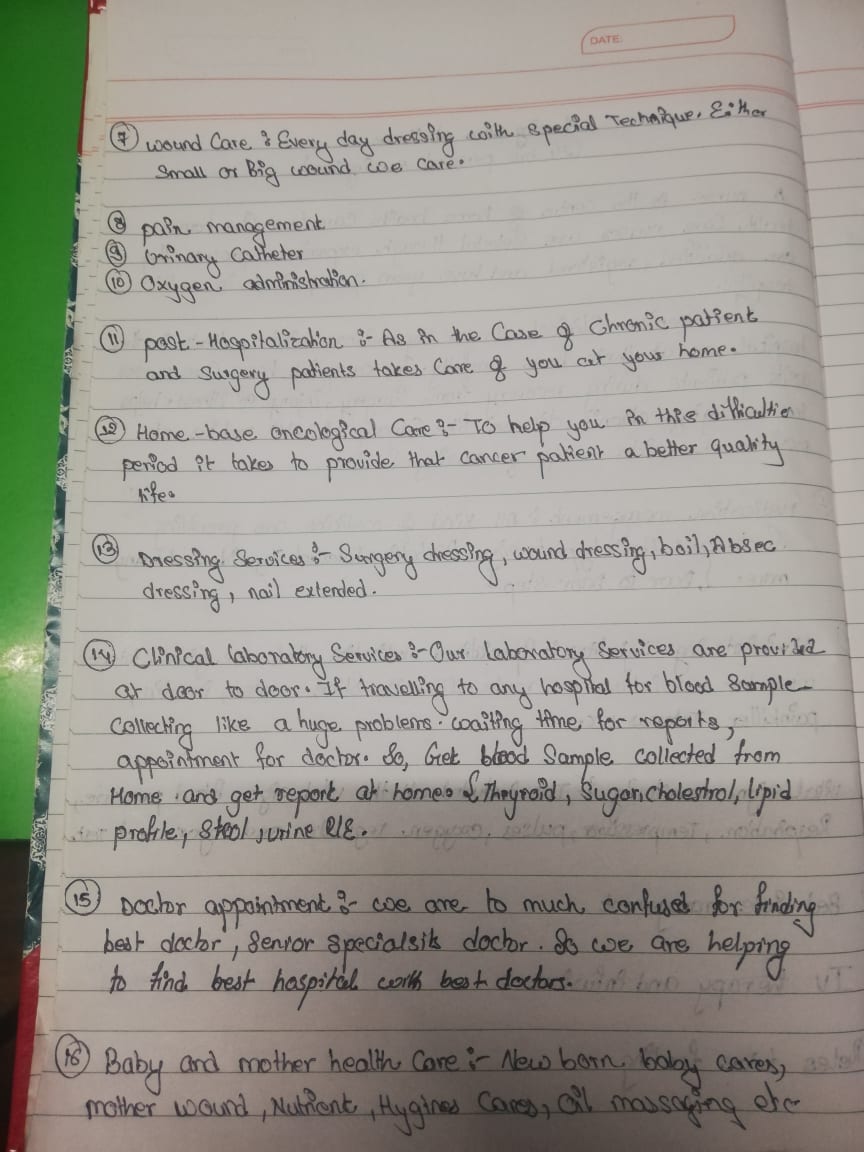 DATE:
⑦ wound Care :- Every day dressing with special Technique. Either
Small or Big wound we care.
⑧ pain management
⑨ Urinary Catheter
⑩ Oxygen administration.
⑪ post-Hospitalization :- As in the Case of Chronic patient
and Surgery patients takes Care of you at your home.
⑫ Home-base oncological Care :- To help you in this difficultie
period it takes to provide that cancer patient a better quality
life.
⑬ Dressing Services :- Surgery dressing, wound dressing, boil, Absec
dressing, nail extended.
⑭ Clinical laboratory Services :- Our laboratory Services are provided
at door to door. If travelling to any hospital for blood Sample
Collecting like a huge problems. waiting time for reports,
appointment for doctor. So, Get blood Sample collected from
Home and get report at home. & Thyroid, Sugar, cholestrol, lipid
profile, Stool, urine R/E.
⑮ Doctor appointment :- we are to much confused for finding
best doctor, Senior specialsit doctor. So we are helping
to find best hospital with best doctors.
⑯ Baby and mother health Care :- New born baby cares,
mother wound, Nutrient, Hygines Cares, Oil massaging etc